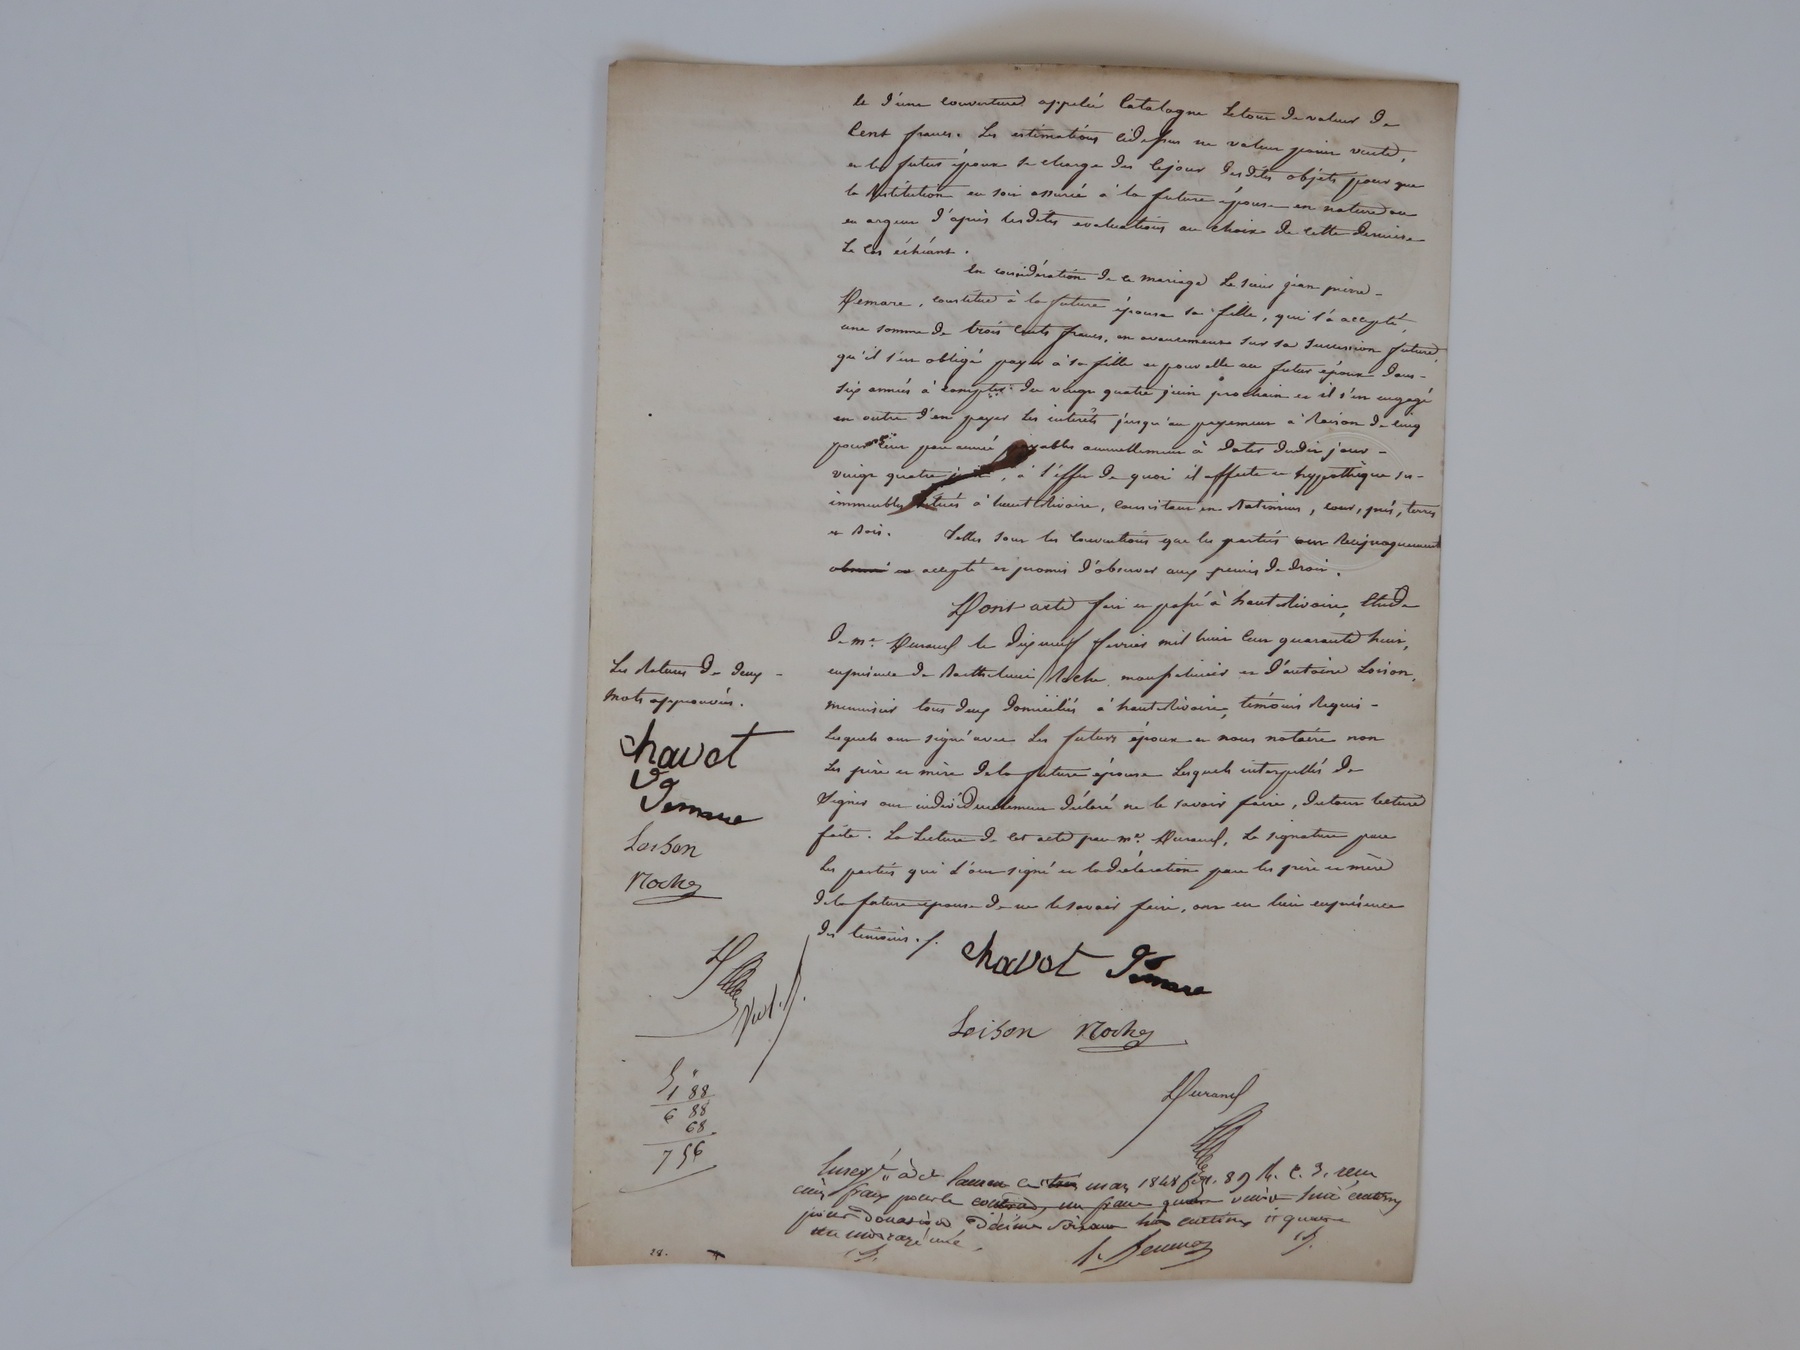 et d'une couverture appelée Catalogne le tout de valeur de
Cent francs. Les estimations cidessus ne valeur point vente,
et le futur époux se charge dès cejour desdits objets pour que
la Restitution en soit assurée à la future épouse en nature ou
en argent d'après lesdites evaluations au choix de cette dernière
le Cas échéant.
En considération de ce mariage le sieur jean pierre
Demare, constitue à la future épouse sa fille, qui l'a accepté,
une somme de trois Cents francs, en avancement sur sa succession future,
qu'il s'en obligé payer à sa fille et pour elle au futur époux dans
six années à compter du vingt quatre juin prochain et il s'en engagé
en outre d'en payer les interêts jusqu'au payement à Raison de cinq
pour Cent par année payables annuellement à dater dudit jour
vingt quatre juin, à l'effet de quoi il affecte et hypothèque ses
immeubles situés à hauteRivoire, Consistant en Batiments, cour, prés, terres
et Bois. Telles sont les Conventions que les parties ont Reciproquement
accepté et promis d'observer aux peines de droit.
Dont acte fait et passé à hauteRivoire, Etude
de me. Durand le dixneuf fevrier mil huit Cent quarante huit,
enprésence de Barthelemi Roche et d'antoine Loison,
menuisier tous deux domiciliés à hauteRivoire, témoins Requis
lesquels ont signé avec les futurs époux et nous notaire non
les père et mère dela future épouse lesquels interpellés de
signer ont individuellement déclaré ne le savoir faire, dutout lecture
faite. La Lecture de cet acte par me. Durand, la signature par
les parties qui l'ont signé et la déclaration par les père et mère
dela future épouse de ne lesavoir faire, ont eu lieu enprésence
des témoins./.
Les Ratures de deux
mots approuvées.
Chavot
Demare
Loison
Roche
Chavot Demare
Loison Roche
Durand
5 "
1 88
6 88
68
7 56
Enregé à St Laurent le mars 1848 fo. 89 R. C. 3, reçu
cinq francs pour le contrat, un franc
pour donation, Décime soixante huit centimes